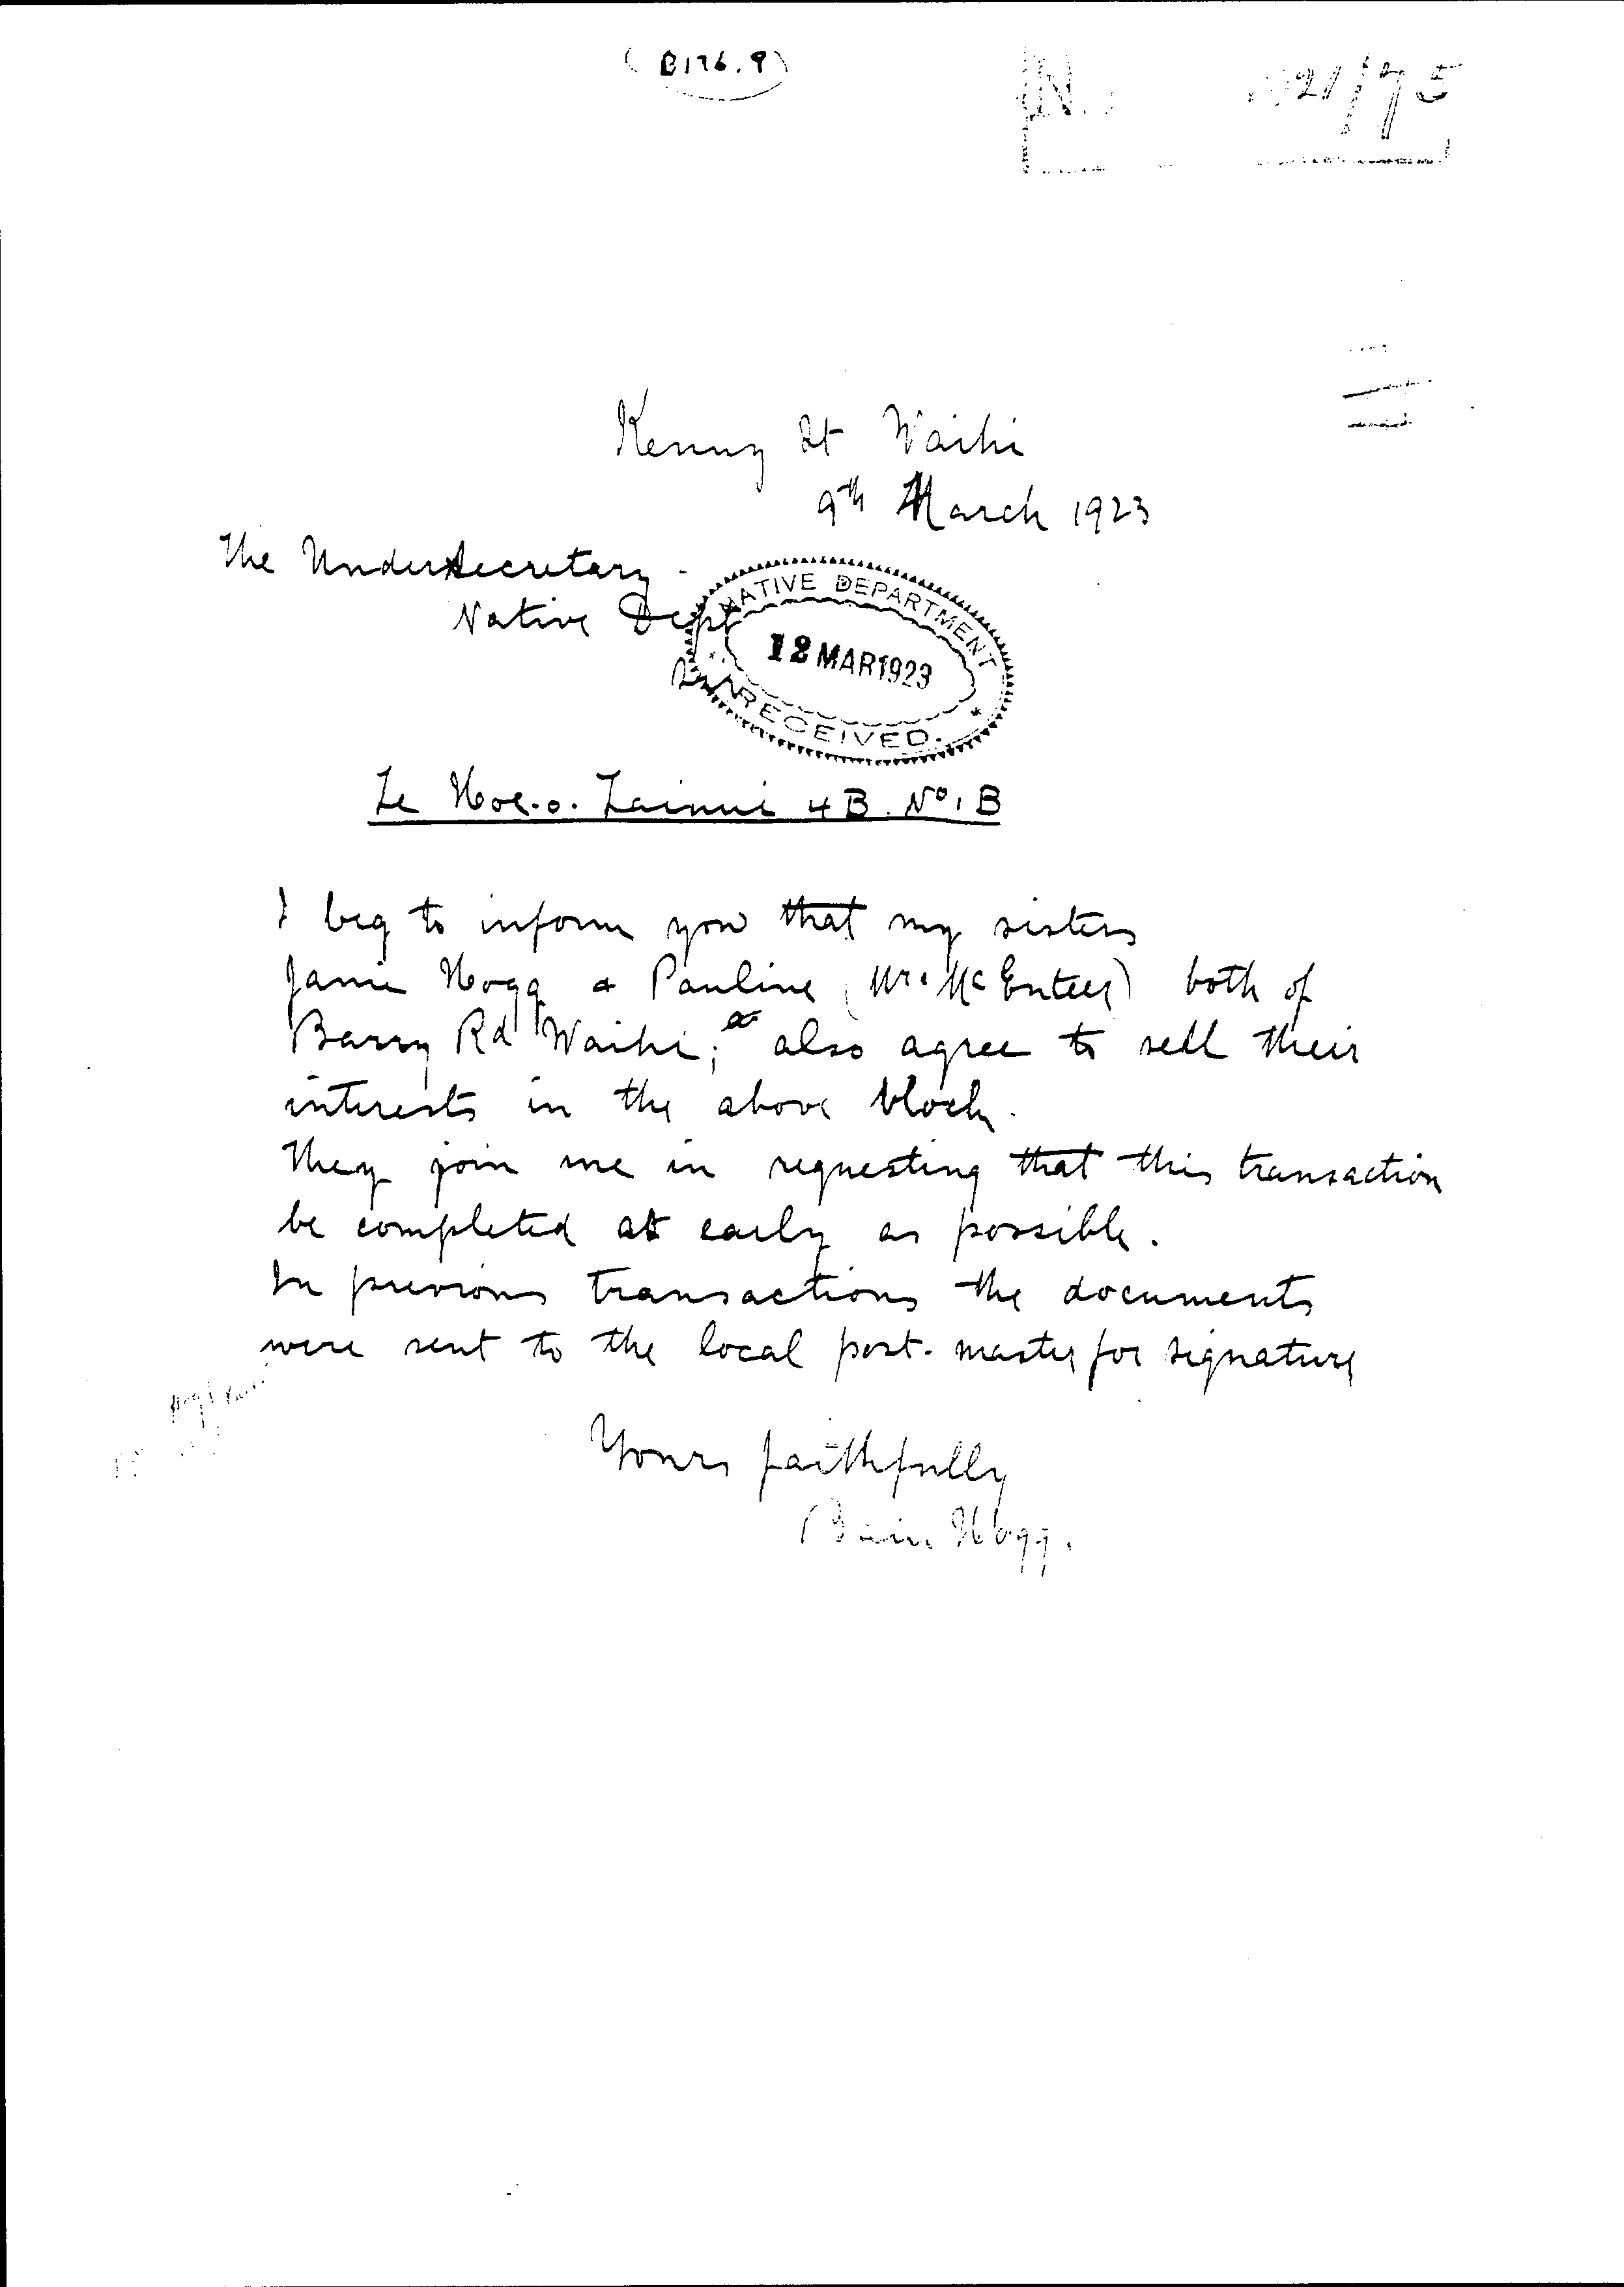 (B176.9)
N. 21/75
Kenny St Waihi
9th March 1923
The Undersecretary
Native Dept
NATIVE DEPARTMENT
12 MAR 1923
RECEIVED.
Te Hoe.o.Tainui 4B. No 1B
I beg to inform you that my sisters
Janie Hogg & Pauline (Mrs McEnteer) both of
Barry Rd Waihi; also agree to sell their
interests in the above block.
They join me in requesting that this transaction
be completed as early as possible.
In previous transactions the documents
were sent to the local post-master for signature
Yours faithfully
Bain Hogg.